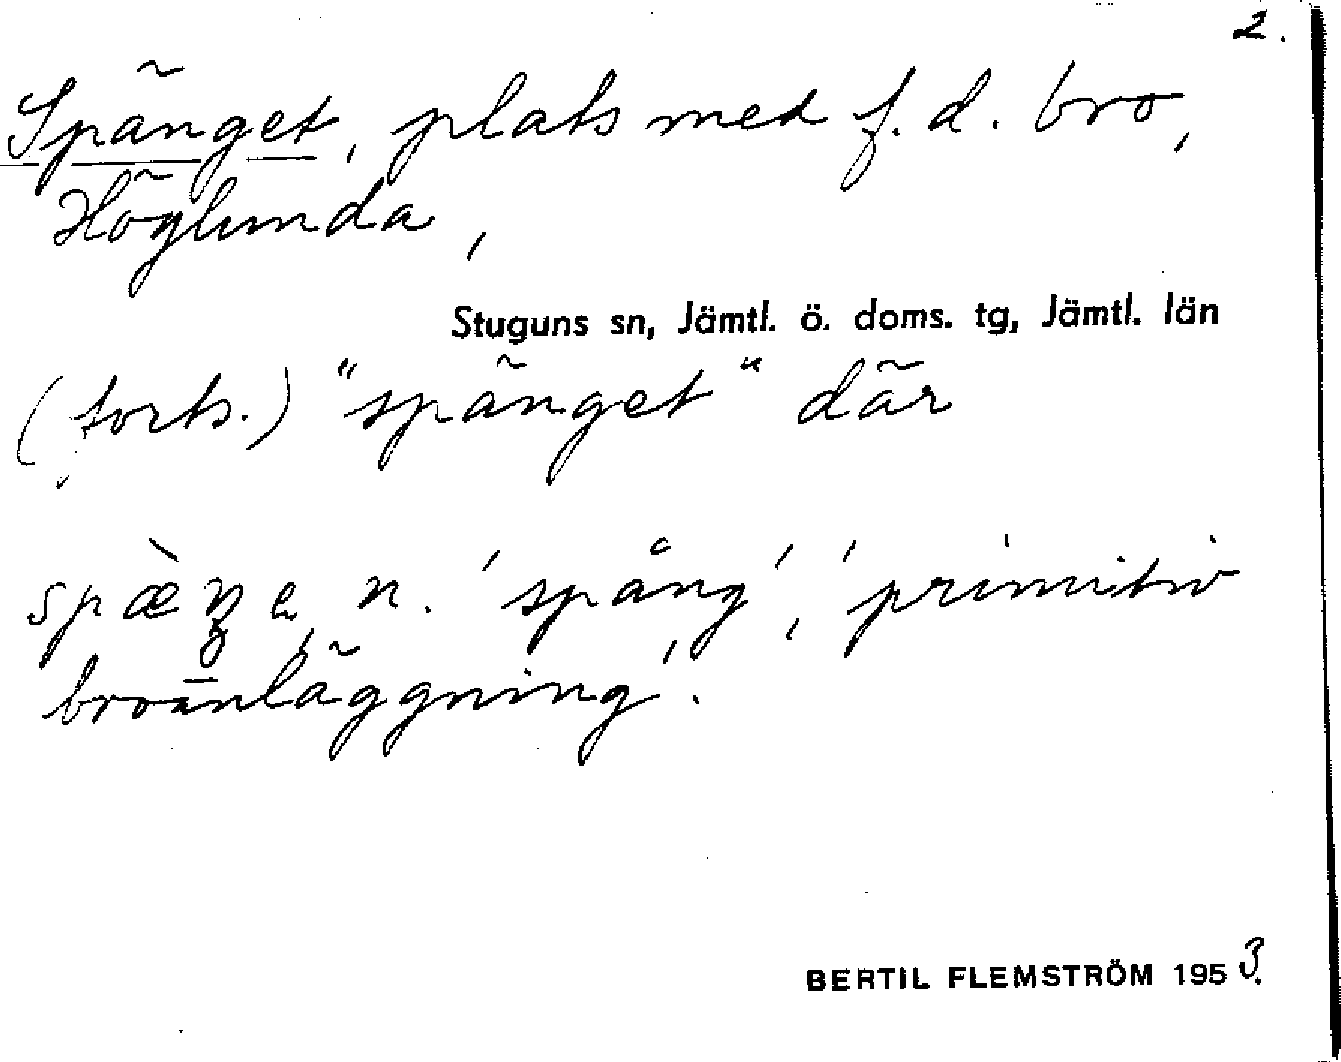 2.
Spänget, plats med f.d. bro,
Höglunda,
Stuguns sn, Jämtl. ö. doms. tg, Jämtl. län
(forts.) "spänget" där
n. 'spång', 'primitiv
broanläggning'.
BERTIL FLEMSTRÖM 1953.